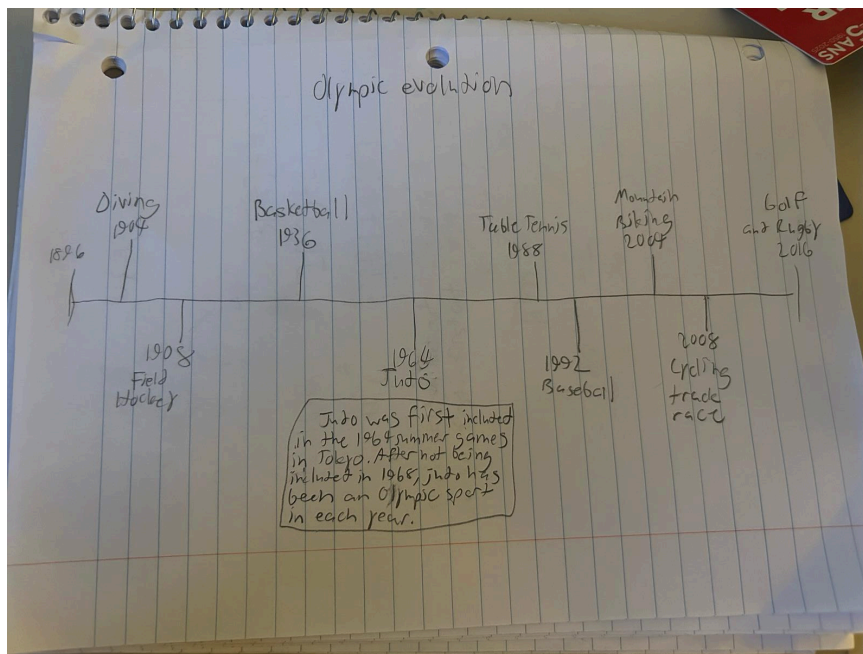 SANS
Olympic evolution
1896
Diving
1904
Basketball
1936
Table Tennis
1988
Mountain
Biking
2004
Golf
and Rugby
2016
1908
Field
Hockey
1964
Judo
1992
Baseball
2008
Cycling
track
race
Judo was first included
in the 1964 summer games
in Tokyo. After not being
included in 1968, judo has
been an Olympic sport
in each year.